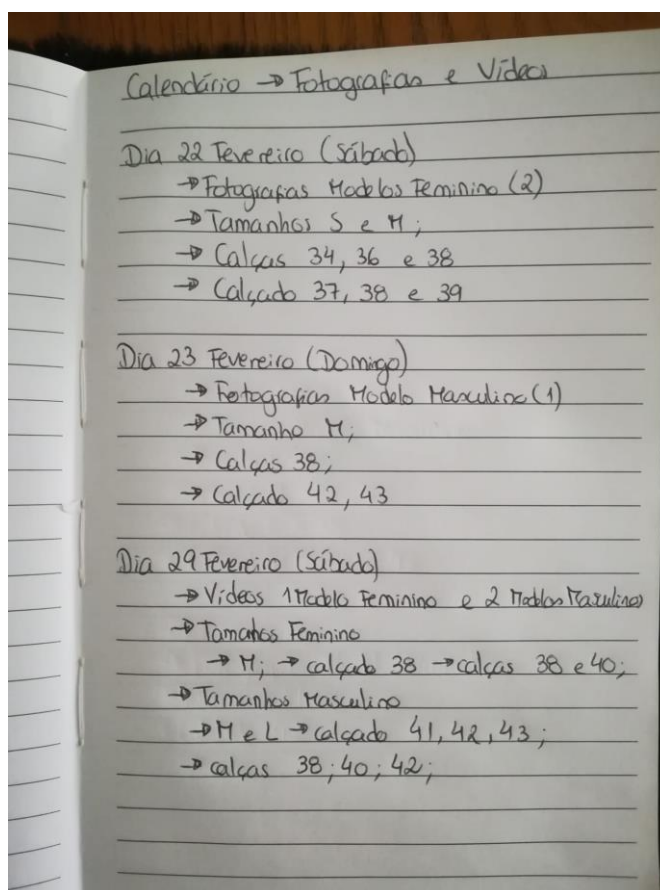 Calendário → Fotografias e Vídeos
Dia 22 Fevereiro (Sábado)
→ Fotografias Modelos Feminino (2)
→ Tamanhos S e M;
→ Calças 34, 36 e 38
→ Calçado 37, 38 e 39
Dia 23 Fevereiro (Domingo)
→ Fotografias Modelo Masculino (1)
→ Tamanho M;
→ Calças 38;
→ Calçado 42, 43
Dia 29 Fevereiro (Sábado)
→ Vídeos 1 Modelo Feminino e 2 Modelos Masculinos
→ Tamanhos Feminino
→ M; → calçado 38 → calças 38 e 40;
→ Tamanhos Masculino
→ M e L → calçado 41, 42, 43;
→ calças 38; 40; 42;